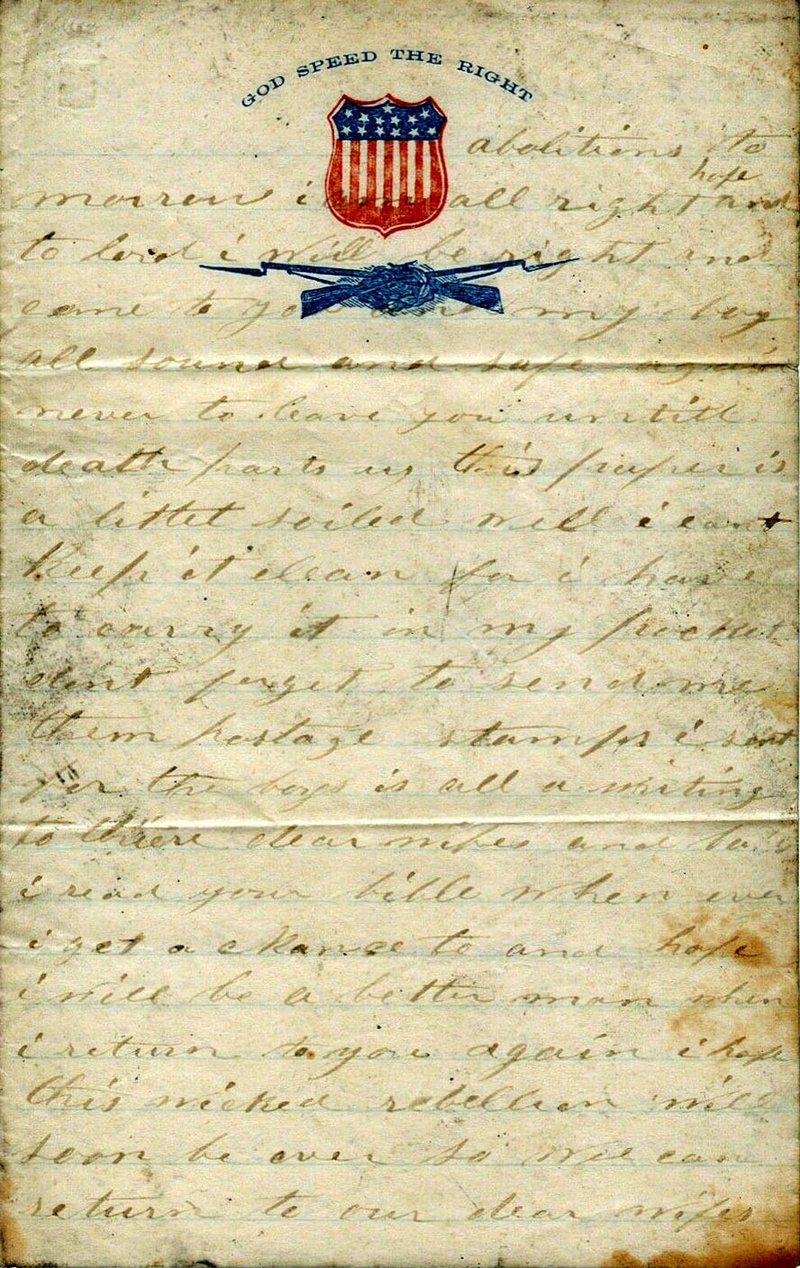 GOD SPEED THE RIGHT
abolitions to
hope
morrow i am all right and
to lord i will be right and
come to you and my boy
all sound and safe again
never to leave you untill
death parts us this paper is
a littel soiled well i cant
keep it clean for i have
to carry it in my pocket
dont forget to send me
them postage stamps i sent
for the boys is all a writing
to there dear wifes and
i read your bible when ever
i get a chance to and hope
i will be a better man when
i return to you again i hope
this wicked rebellion will
soon be over so wee can
return to our dear wifes